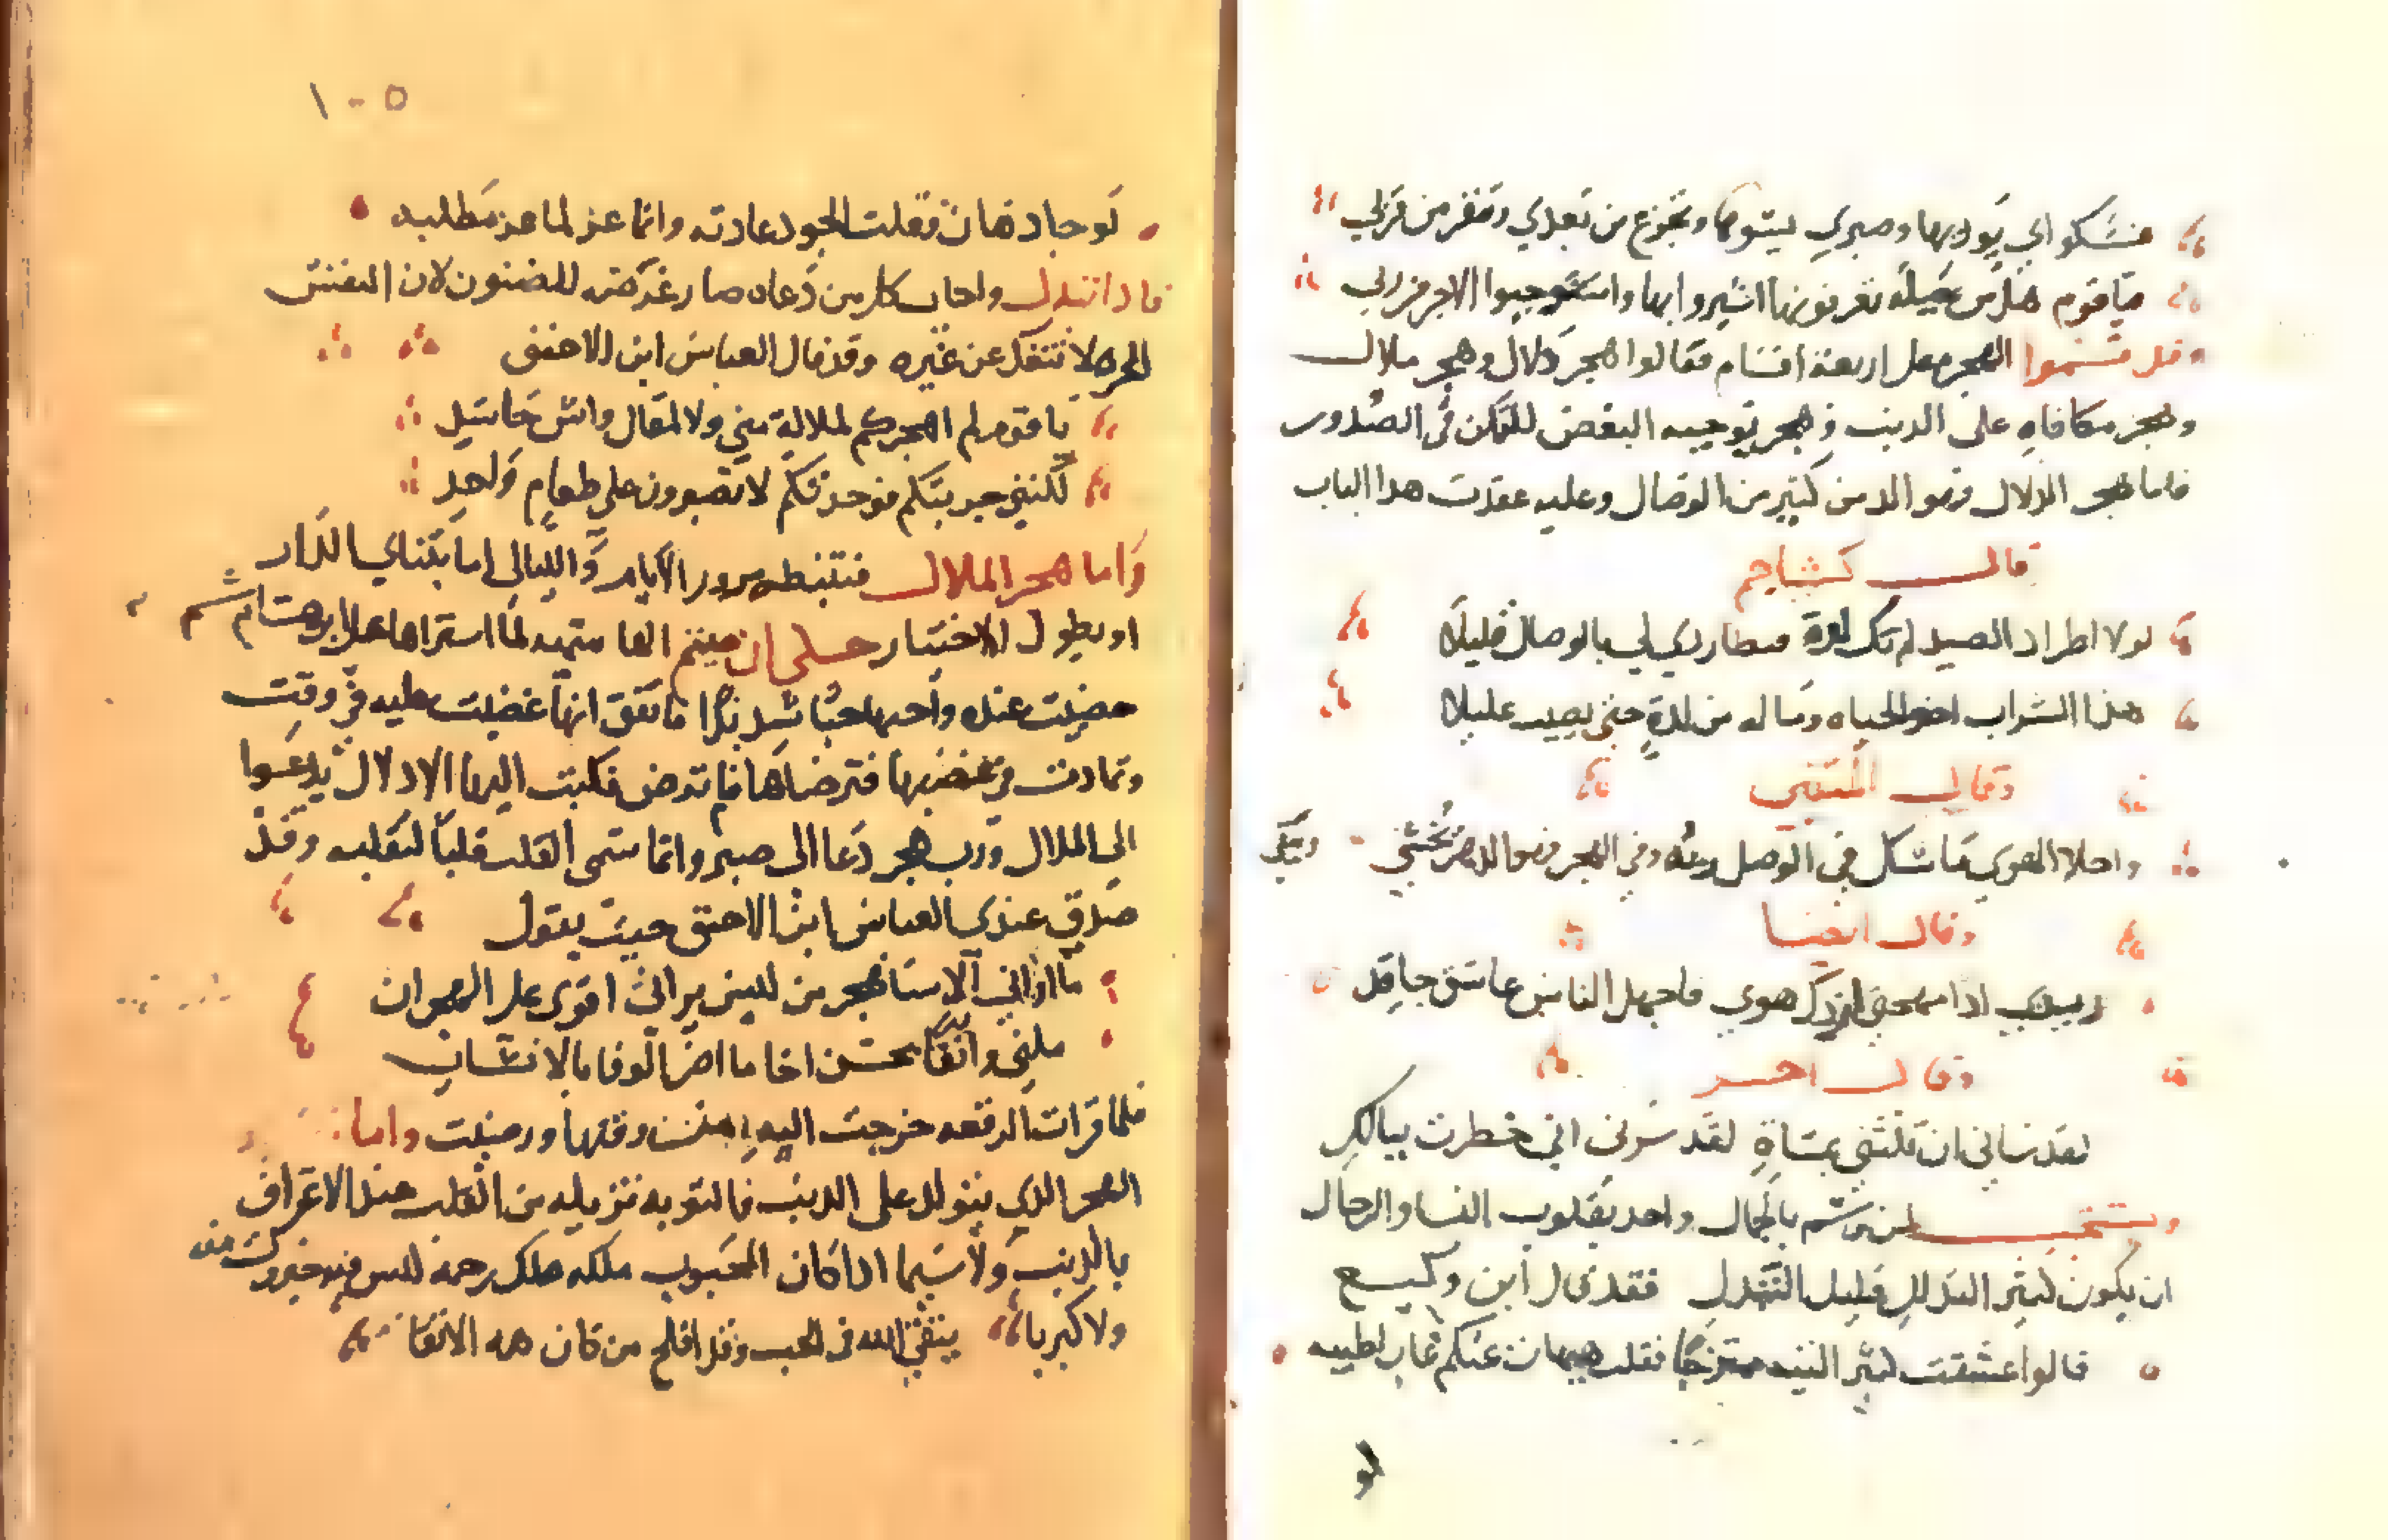 فشكواي يوديها وصبري يسوها وتجزع من بعدي وتنفر من قربي
فيا قوم هل من حيلة تعرفونها اشيروا بها واستوجبوا الاجر من ربي
وقد قسموا الهجر على اربعة اقسام فقالوا هجر دلال وهجر ملال
وهجر مكافاه على الذنب وهجر يوجبه البغض المتمكن في الصدور
فاما هجر الدلال فهو الذ من كثير من الوصال وعليه عقدت هدا الباب
قال كشاجم
لولا اطراد الصيد لم تك لدة فتطاردي لي بالوصال قليلا
هذا الشراب اخو الحياه وماله من لدة حتى يصيب غليلا
وقال المتنبي
واحلا الهوي ما شك في الوصل ربه وفي الهجر فهو الدهر يخشي ويتقي
وقال ايضا
زيدي اذا مهجتي ازدك هوي فاجهل الناس عاشق حاقد
وقال اخر
لقد ساني ان نلتني بمساة لقد سرني اني خطرت ببالك
ويستحب لمن وسم بالجمال واخد بقلوب النسا والرجال
ان يكون كثير التدلل قليل التبدل فقد قال ابن وكيع
قالوا عشقت كثير التيه ممتزجا فقلت هيهات عنكم غاب لطيبه
لو
١٠٥
لو جاد هان فقلت الجود عادته وانما عز لما عز مطلبه
فاذا تبدل واجاب كل من دعاه صار غير كفه للضنون لان النفس
الحره لا تنفك عن غيره وقد قال العباس ابن الاحنف
يا قوم لم اهجركم لملالة مني ولا لمقال واش حاسد
لكنني جربتكم فوجدتكم لا تصبرون على طعام واحد
واما هجر الملال فتبطله مرور الايام والليالي اما بتناي الدار
او بطول الاختبار حكى ان ميتم الهاشميه لما اشتراها علي ابن هشام
حضيت عنده واحبها حبا شديدا فاتفق انها غضبت عليه في وقت
وتمادت في غضبها فترضاها فلم ترض فكتب اليها الادلال يدعوا
الى الملال ورب هجر دعا الى صبر وانما سمي القلب قلبا لتقلبه وقد
صدق عندي العباس ابن الاحنف حيث يقول
ما اراني الا ساهجر من ليس يراني اقوى على الهجران
ملني واثقا بحسن اخا ما اضر الوفا بالانسان
فلما قرات الرقعه خرجت اليه من وقتها ورضيت واما
الهجر الذي يتولد على الذنب فالتوبه تزيله من القلب عند الاعتراف
بالذنب ولا سيما اذا كان المحبوب ملكه ملك رحمه ليس فيه جبروت منه
ولا كبريا يتقي الله في الحب وقد افلح من كان همه الاتقا